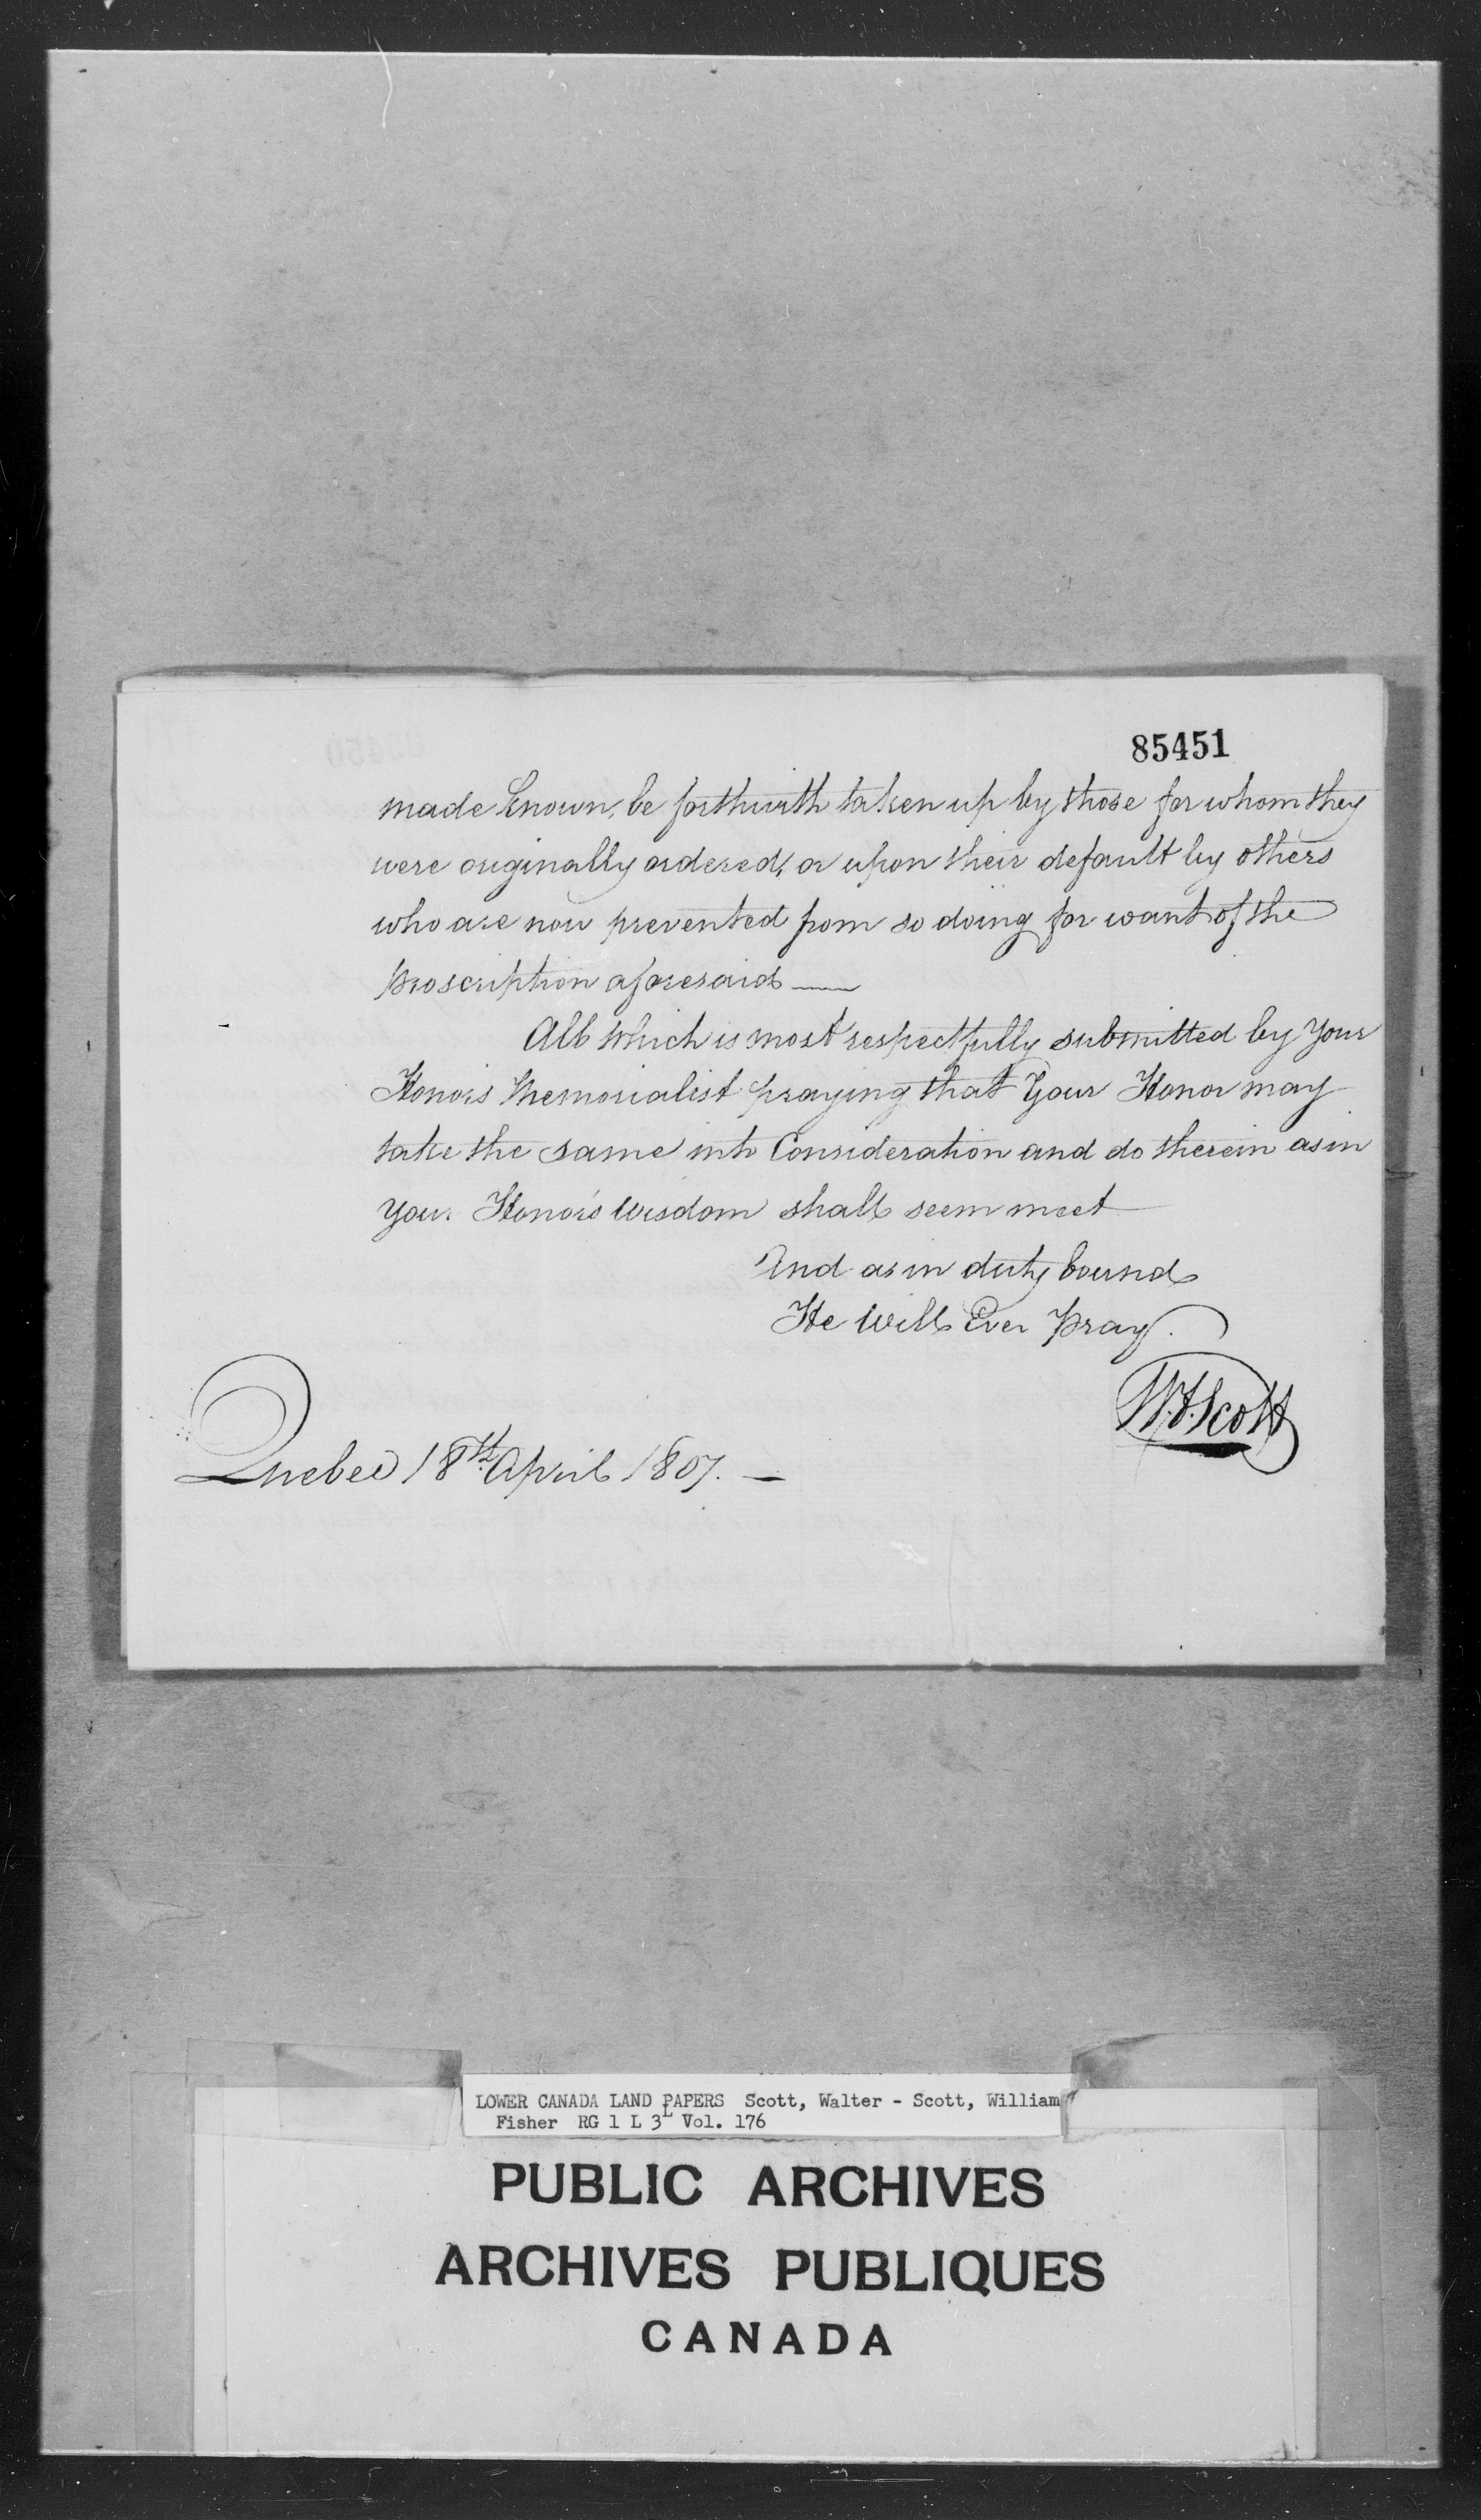 85451
made known, be forthwith taken up by those for whom they
were originally ordered, or upon their default by others
who are now prevented from so doing for want of the
proscription aforesaid —
All which is most respectfully submitted by Your
Honors Memorialist praying that Your Honor may
take the same into Consideration and do therein as in
your Honors Wisdom shall seem meet
And as in duty bound
He Will Ever Pray.
W.F. Scott
Quebec 18th April 1807. —
LOWER CANADA LAND PAPERS Scott, Walter - Scott, William
Fisher RG 1 L 3L Vol. 176
PUBLIC ARCHIVES
ARCHIVES PUBLIQUES
CANADA